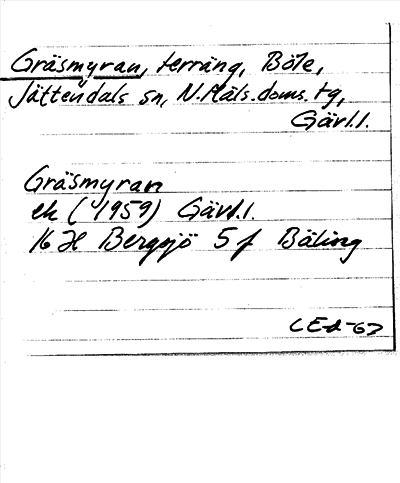 Gräsmyran, terräng, Böle,
Jättendals sn, N. Häls. doms. tg,
Gävl. l.
Gräsmyran
ek (1959) Gävl. l.
16 H Bergsjö 5 f Bäling
CEd-67